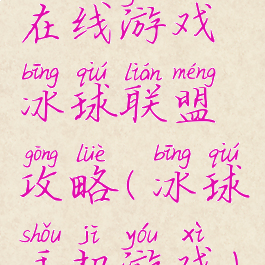 在线游戏
bīng qiú lián méng
冰球联盟
gōng lüè bīng qiú
攻略(冰球
shǒu jī yóu xì
手机游戏)